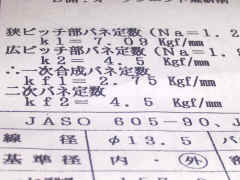 狭ピッチ部バネ定数(Na=1.2
k1= 7.09 Kgf/mm
広ピッチ部バネ定数(Na=
k2= 4.5 Kgf/mm
∴一次合成バネ定数
kf1= 2.75 Kgf/mm
二次バネ定数
kf2= 4.5 Kgf/mm
JASO 605-90、J
線 径 φ13.5
基準径 内・外